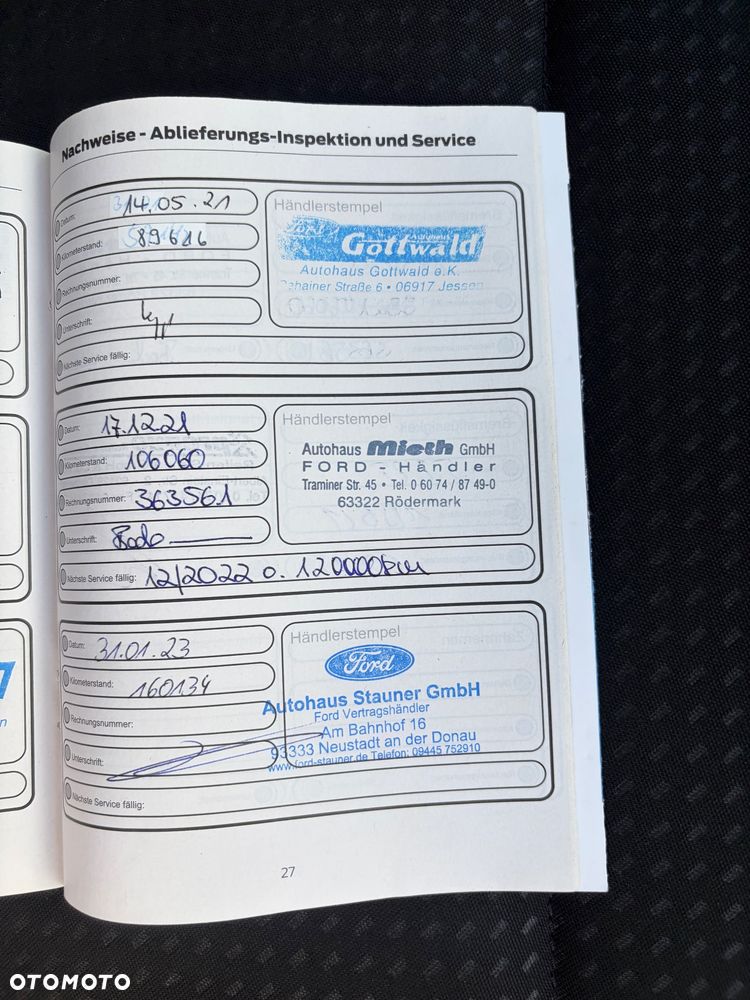 Nachweise - Ablieferungs-Inspektion und Service
Datum: 14.05.21
Kilometerstand: 89616
Rechnungsnummer:
Unterschrift:
Nächste Service fällig:
Händlerstempel
Ford Autohaus Gottwald
Autohaus Gottwald e.K.
Straße 6 • 06917 Jessen
Datum: 17.12.21
Kilometerstand: 106060
Rechnungsnummer: 363561
Unterschrift:
Nächste Service fällig: 12/2022 o. 120000km
Händlerstempel
Autohaus Mieth GmbH
FORD - Händler
Traminer Str. 45 • Tel. 0 60 74 / 87 49-0
63322 Rödermark
Datum: 31.01.23
Kilometerstand: 160134
Rechnungsnummer:
Unterschrift:
Nächste Service fällig:
Händlerstempel
Ford
Autohaus Stauner GmbH
Ford Vertragshändler
Am Bahnhof 16
93333 Neustadt an der Donau
www.ford-stauner.de Telefon: 09445 752910
27
OTOMOTO